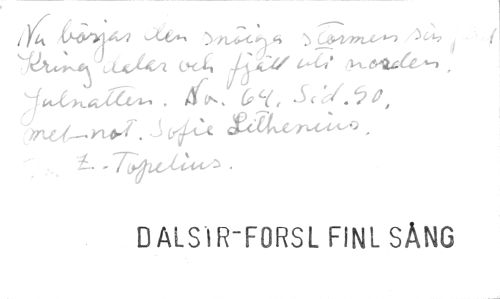 Nu börjas den snöiga stormens sin
Kring dalar och fjäll uti norden.
Julnatten. No. 64. Sid. 90.
med not. Sofie Lithenius.
Z. Topelius.
DALSIR-FORSL FINL SÅNG